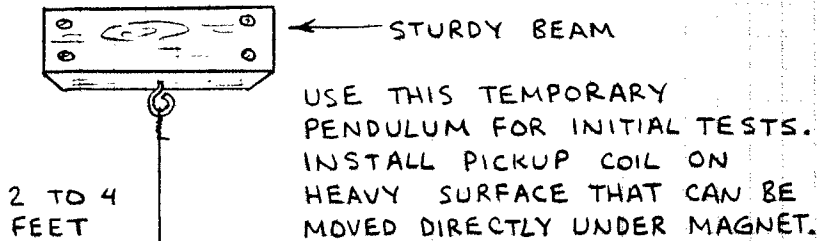 STURDY BEAM
USE THIS TEMPORARY
PENDULUM FOR INITIAL TESTS.
INSTALL PICKUP COIL ON
HEAVY SURFACE THAT CAN BE
MOVED DIRECTLY UNDER MAGNET.
2 TO 4
FEET